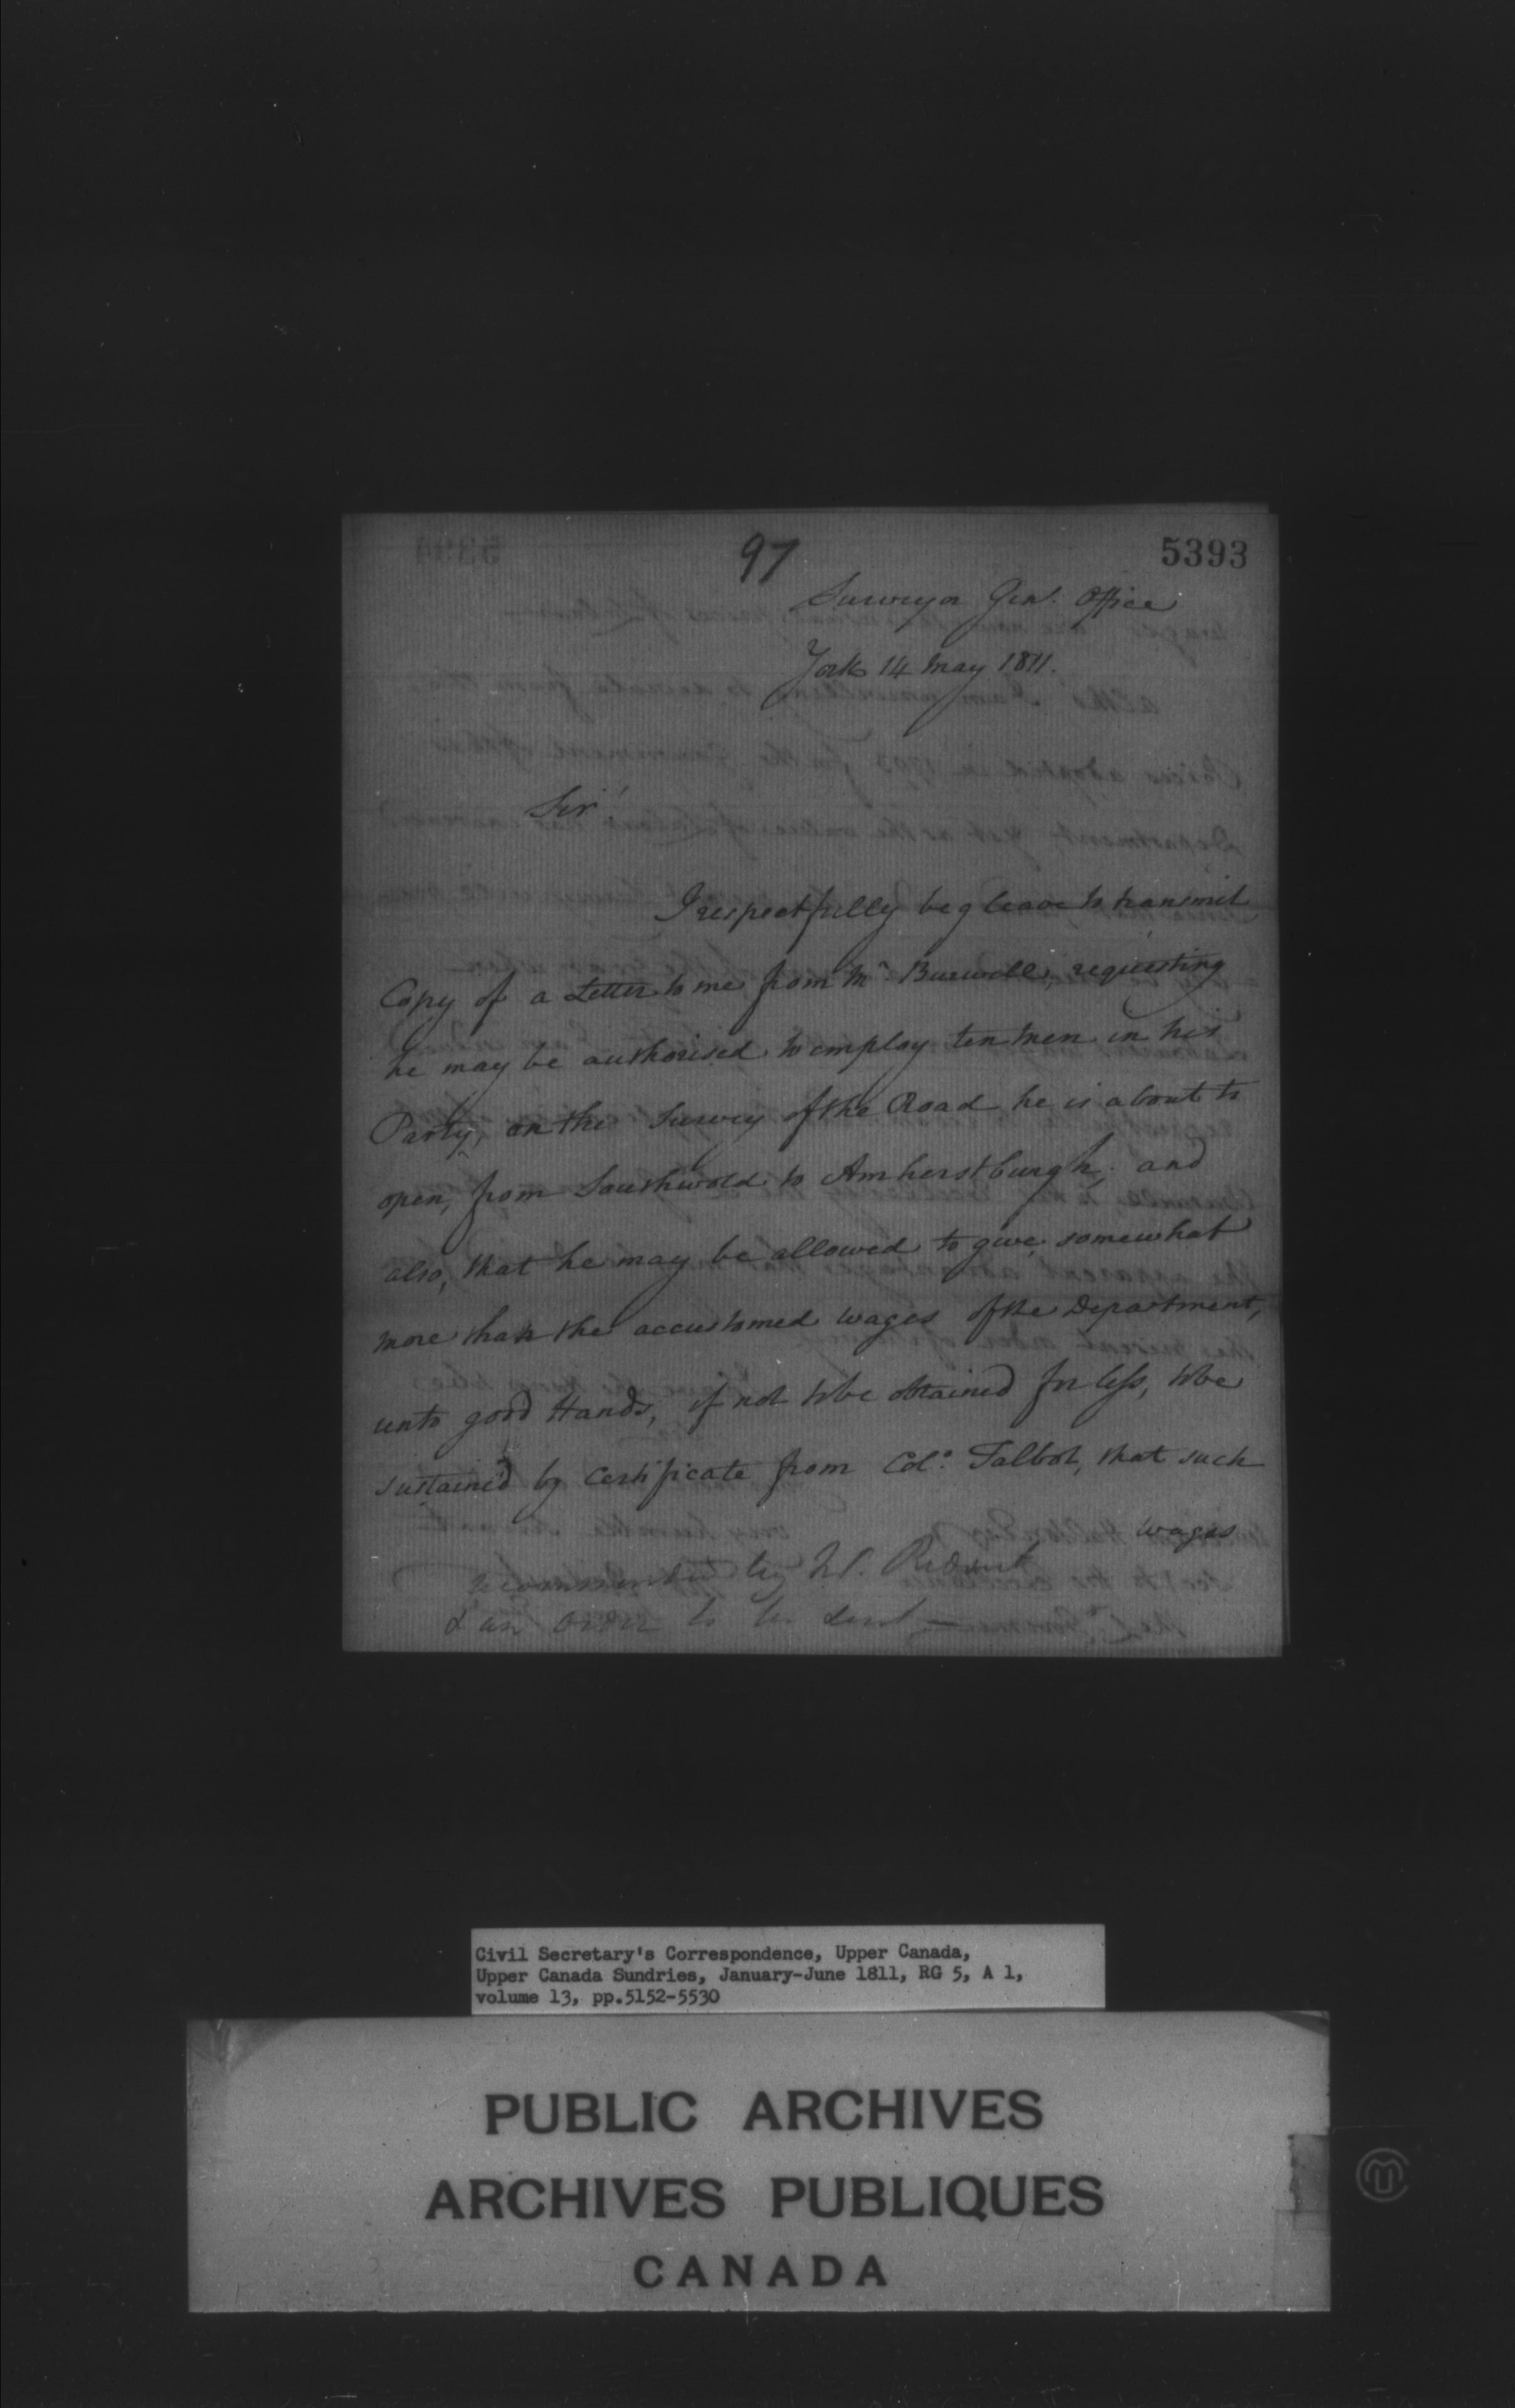 97
5393
Surveyor Genl. Office
York 14 May 1811.
Sir
I respectfully beg leave to transmit
Copy of a Letter to me from Mr Burwell, requesting
he may be authorised to employ ten Men in his
Party, on the Survey of the Road he is about to
open, from Southwold to Amherstburgh; and
also, that he may be allowed to give somewhat
more than the accustomed wages of the Department,
unto good Hands, if not to be obtained for less, to be
sustained by Certificate from Colo. Talbot, that such
wages
recommended by Mr. Ridout
& an order to be sent —
Civil Secretary's Correspondence, Upper Canada,
Upper Canada Sundries, January-June 1811, RG 5, A 1,
volume 13, pp.5152-5530
PUBLIC ARCHIVES
ARCHIVES PUBLIQUES
CANADA